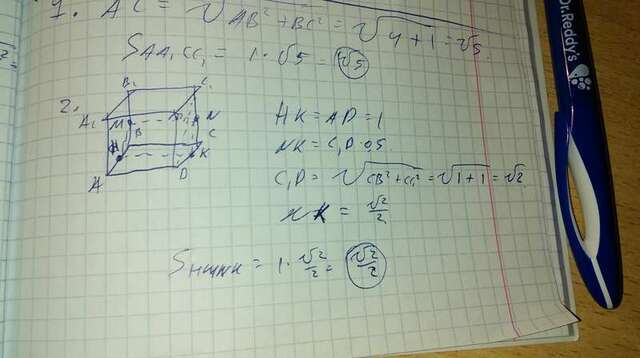 1. AC = √AB² + BC² = √4 + 1 = √5
S AA₁CC₁ = 1 · √5 = √5
2.
B₁ C₁
A₁ M N
B C
H K
A D
HK = AD = 1
NK = C₁D · 0.5
C₁D = √CB² + CC₁² = √1 + 1 = √2
NK = √2/2
S HMNK = 1 · √2/2 = √2/2
Dr.Reddy's